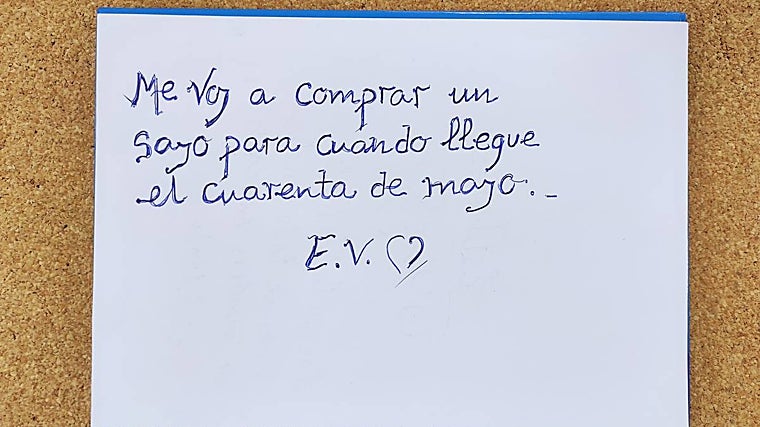 Me voy a comprar un
sayo para cuando llegue
el cuarenta de mayo._
E.V.♡